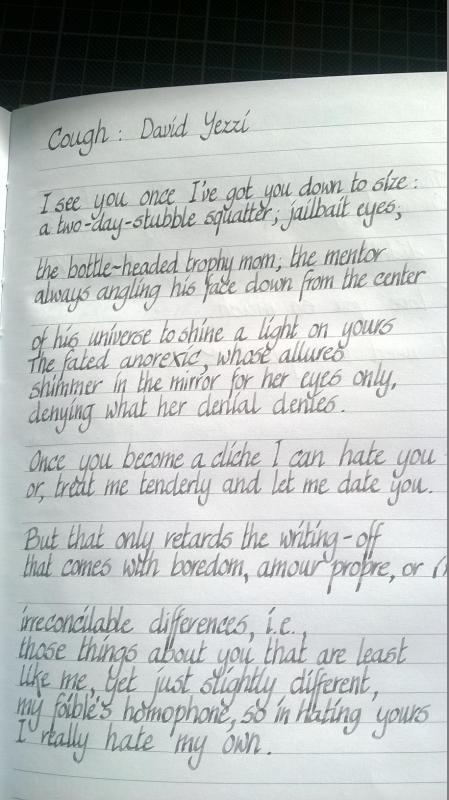 Cough : David Yezzi
I see you once I've got you down to size :
a two-day-stubble squatter; jailbait eyes;
the bottle-headed trophy mom; the mentor
always angling his face down from the center
of his universe to shine a light on yours
The fated anorexic, whose allures
shimmer in the mirror for her eyes only,
denying what her denial denies.
Once you become a cliche I can hate you
or, treat me tenderly and let me date you.
But that only retards the writing-off
that comes with boredom, amour propre, or
irreconcilable differences, i.e.,
those things about you that are least
like me, yet just slightly different,
my foible's homophone, so in hating yours
I really hate my own.